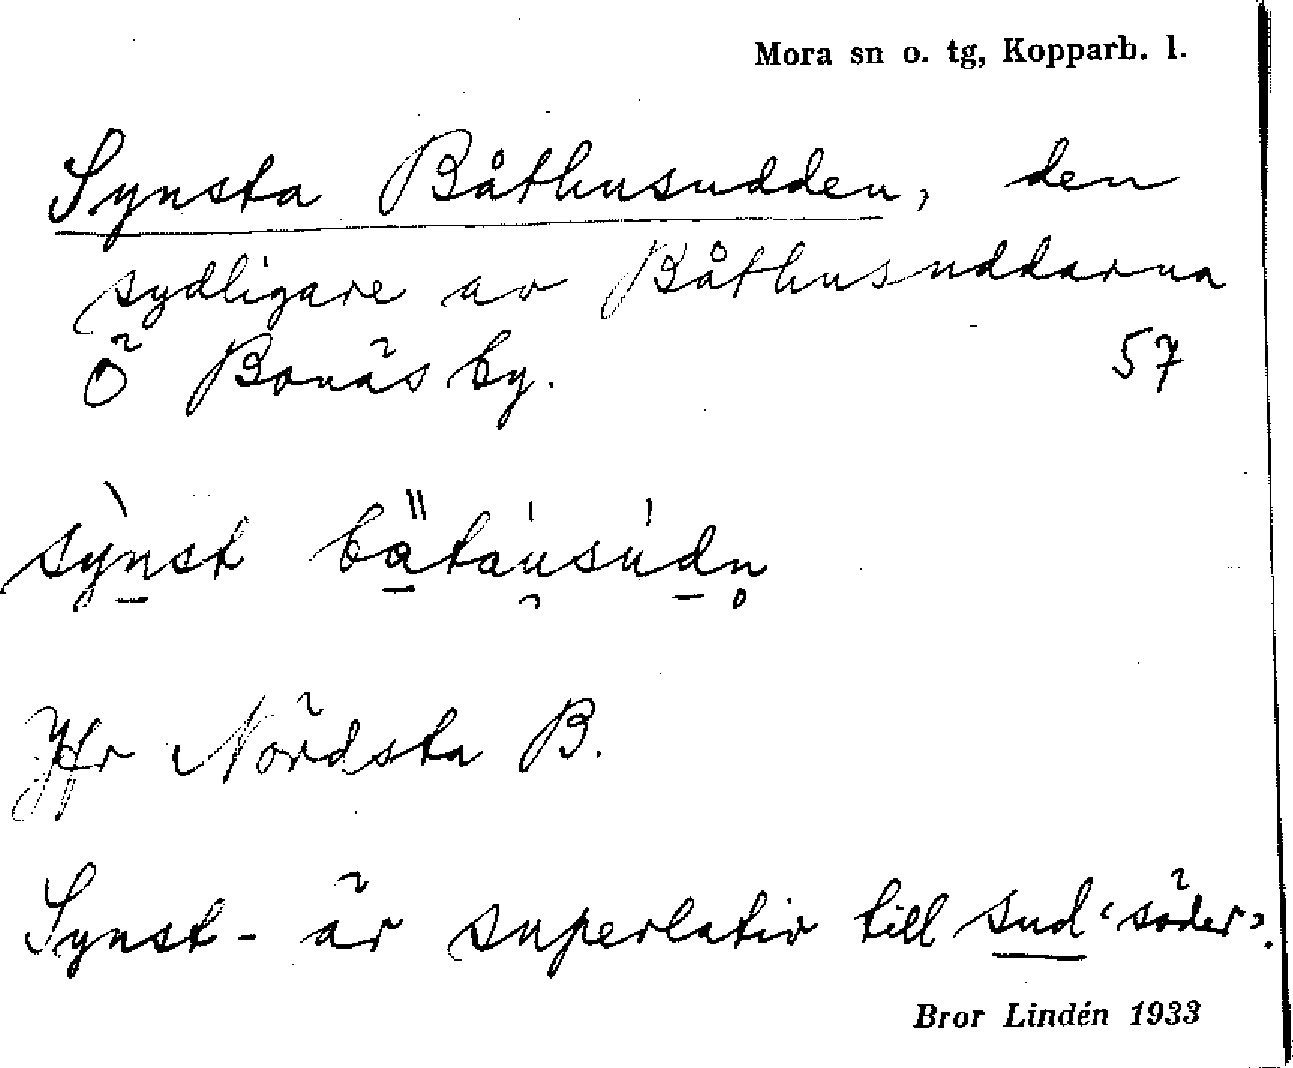 Mora sn o. tg, Kopparb. l.
Synsta Båthusudden, den
sydligare av Båthusuddarna
Ö Bonäs by. 57
sỳ̱nst bä̱táu̯súḏn̥
Jfr Nördsta B.
Synst- är superlativ till sud ‘söder’.
Bror Lindén 1933